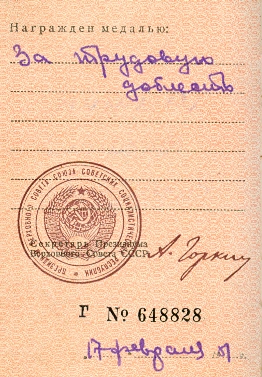 Награжден медалью:
За трудовую
доблесть
ПРЕЗИДИУМ ВЕРХОВНОГО СОВЕТА СОЮЗА СОВЕТСКИХ СОЦИАЛИСТИЧЕСКИХ РЕСПУБЛИК
Секретарь Президиума
Верховного Совета СССР
А. Горкин
Г № 648828
17 февраля